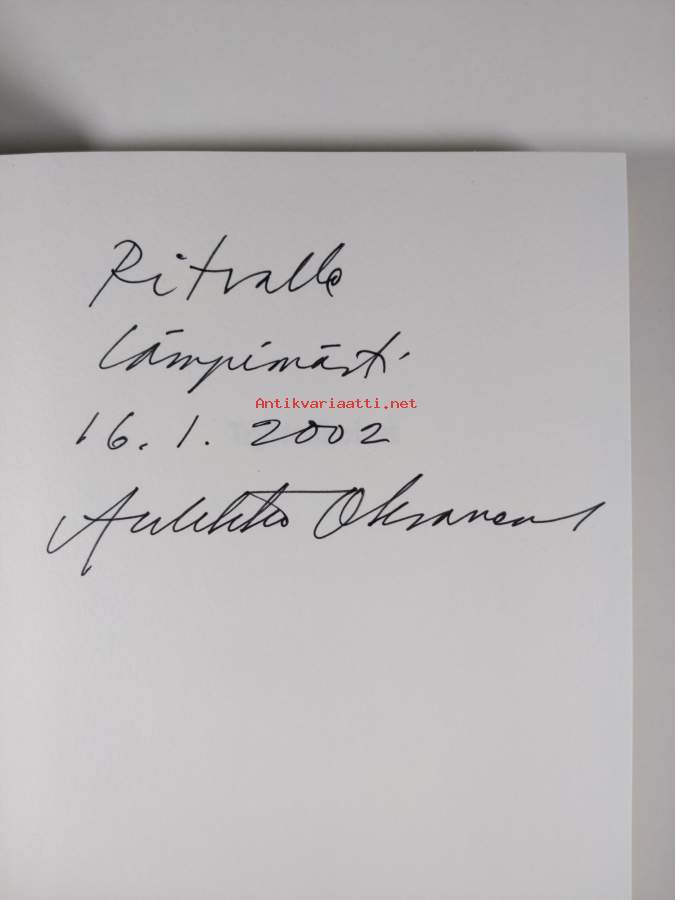 Ritvalle
Lämpimästi
Antikvariaatti.net
16. 1. 2002
Aulikki Oksanen